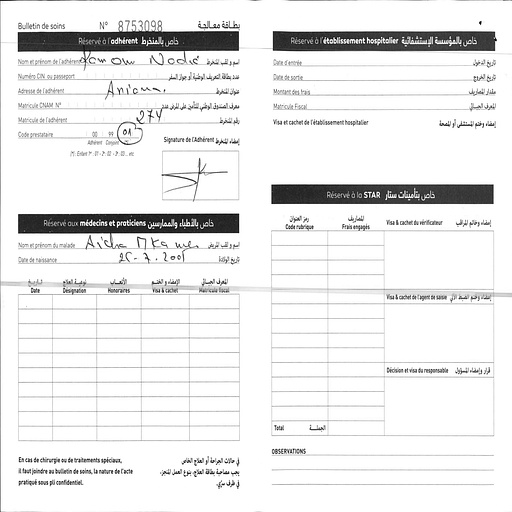 Bulletin de soins N° 8753098 بطاقة معالجة
Réservé à l'adhérent خاص بالمنخرط
Nom et prénom de l'adhérent اسم و لقب المنخرط
Numéro CIN ou passeport عدد بطاقة التعريف الوطنية أو جواز السفر
Adresse de l'adhérent عنوان المنخرط
Matricule CNAM N°
Matricule de l'adhérent 274 رقم المنخرط
Code prestataire 00 99 01
Adhérent Conjoint
Signature de l'Adhérent إمضاء المنخرط
Réservé aux médecins et praticiens خاص بالأطباء والممارسين
Nom et prénom du malade Aicha اسم و لقب المريض
Date de naissance تاريخ الولادة
تاريخ نوعية العلاج الأتعاب الإمضاء و الختم المعرف الجبائي
Date Désignation Honoraires Visa & cachet Matricule fiscal
En cas de chirurgie ou de traitements spéciaux,
il faut joindre au bulletin de soins, la nature de l'acte
pratiqué sous pli confidentiel.
في حالات الجراحة أو العلاج الخاص
يجب مصاحبة بطاقة العلاج، بنوع العمل المنجز،
في ظرف سري.
Réservé à l'établissement hospitalier خاص بالمؤسسة الإستشفائية
Date d'entrée تاريخ الدخول
Date de sortie تاريخ الخروج
Montant des frais مقدار المصاريف
Matricule Fiscal المعرف الجبائي
Visa et cachet de l'établissement hospitalier إمضاء وختم المستشفى أو المصحة
Réservé à la STAR خاص بتأمينات ستار
رمز العنوان المصاريف
Code rubrique Frais engagés
Visa & cachet du vérificateur إمضاء وخاتم المراقب
Visa & cachet de l'agent de saisie
Décision et visa du responsable قرار وإمضاء المسؤول
Total الجملة
OBSERVATIONS